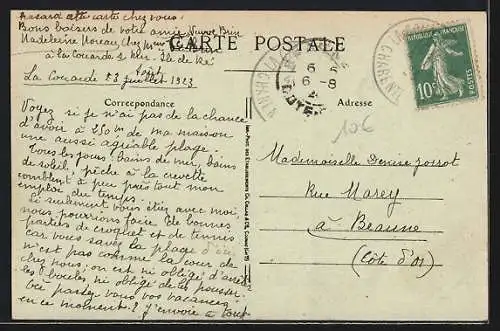 hasard cette carte chez vous.
Bons baisers de votre amie
Madeleine Moreau, chez Mme
à La Couarde s/ Mer. Ile de Ré
CARTE POSTALE
La Couarde 23 juillet 1923
Correspondance
Adresse
Voyez si je n'ai pas de la chance
d'avoir à 250m de ma maison
une aussi agréable plage.
Tous les jours: bains de mer, bains
de soleil, pêche à la crevette
comblent à peu près tout mon
emploi du temps.
Si seulement vous étiez avec moi,
nous pourrions faire de bonnes
parties de croquet et de tennis
car vous savez la plage d'ici
n'est pas comme la cour de
chez nous; on est ni obligé d'arrêter
les boules, ni obligé de les pousser.
Où passez vous vos vacances
en ce moment? J'envoie à tout
Mademoiselle Denise Jorrot
Rue Marey
à Beaune
(Côte d'Or)
10c
10€
6-8